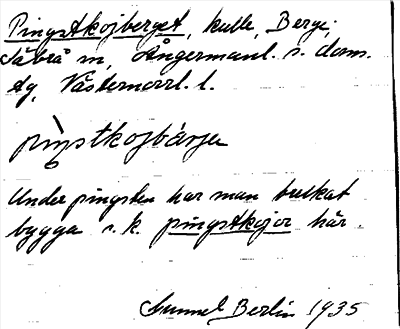 Pingstkojberget, kulle, Berge,
Säbrå sn, Ångermanl. s. doms.
dg, Västernorrl. l.
pingstkojbärje
Under pingsten har man brukat
bygga s. k. pingstkojor här.
Gunnel Berlin 1935